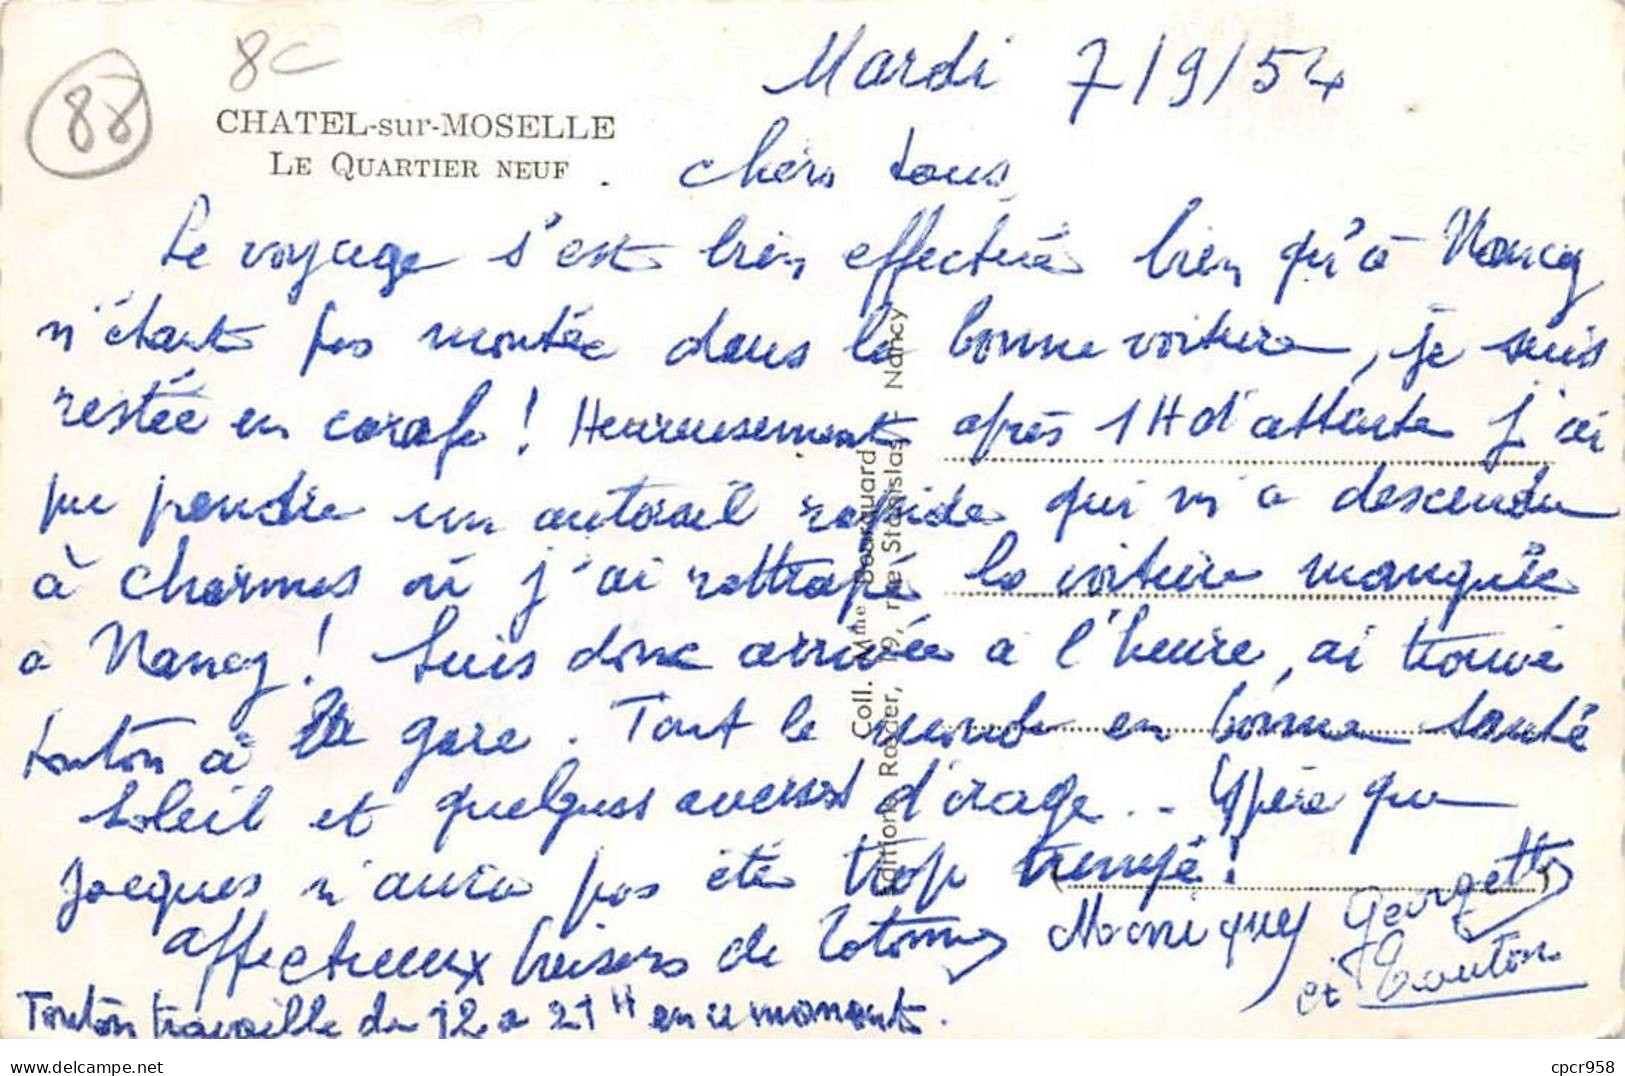 8C
88
CHATEL-sur-MOSELLE
LE QUARTIER NEUF
Mardi 7/9/54
Chers tous,
Le voyage s'est très effectué bien qu'à Nancy
n'étant pas montée dans la bonne voiture, je suis
restée en carafe ! Heureusement après 1H d'attente j'ai
pu prendre un autorail rapide qui m'a descendu
à Charmes où j'ai rattrapé la voiture manquée
à Nancy ! Suis donc arrivée à l'heure, ai trouvé
tonton à la gare. Tout le monde en bonne santé
Soleil et quelques averses d'orage.. Espère que
Jacques n'aura pas été trop trempé !
Affectueux baisers de Totonne Monique Georgette
et Tonton
Tonton travaille de 12 à 21H en ce moment.
Coll. Mme Bourquard
Editions Roeder, 19, rue Stanislas - Nancy
cpcr958